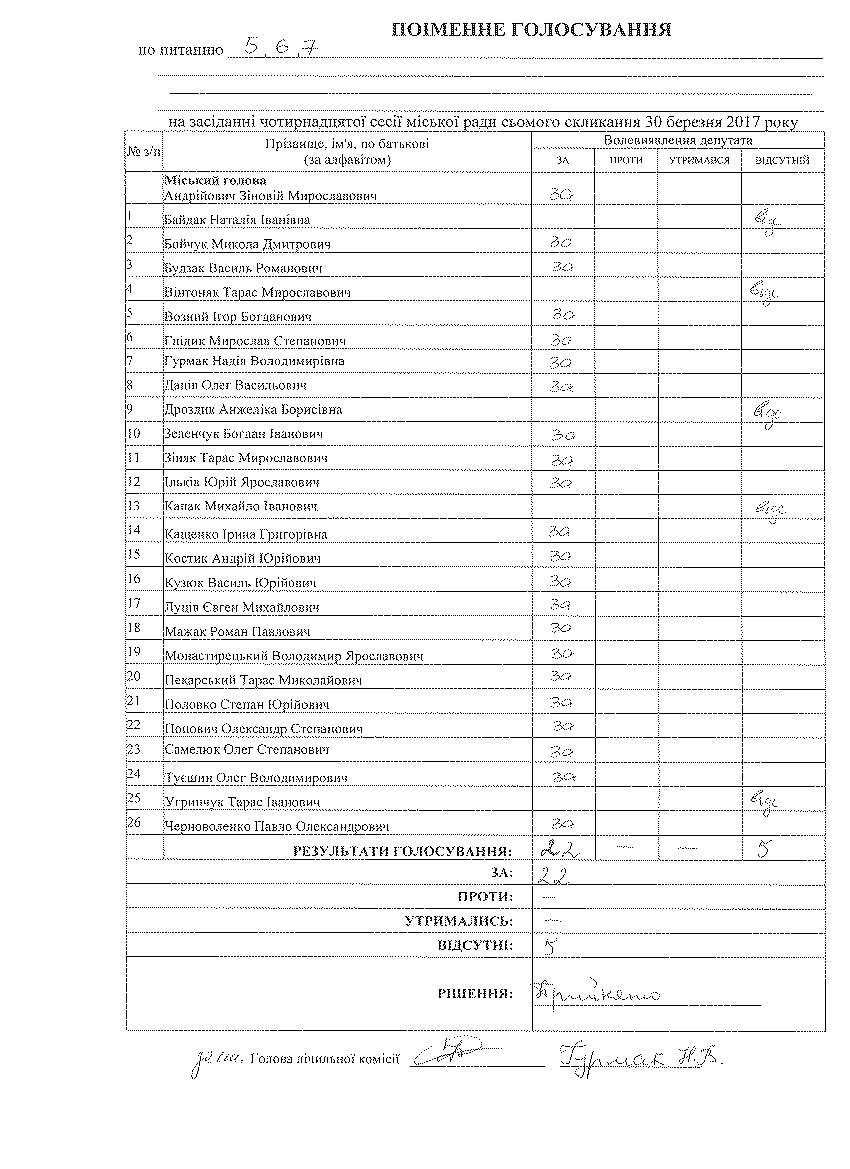 ПОІМЕННЕ ГОЛОСУВАННЯ
по питанню 5, 6, 7
на засіданні чотирнадцятої сесії міської ради сьомого скликання 30 березня 2017 року
№ з/п Прізвище, ім'я, по батькові (за алфавітом) Волевиявлення депутата
ЗА ПРОТИ УТРИМАВСЯ ВІДСУТНІЙ
Міський голова
Андрійович Зіновій Мирославович за
1 Байдак Наталія Іванівна відс
2 Бойчук Микола Дмитрович за
3 Будзак Василь Романович за
4 Вінтоняк Тарас Мирославович відс
5 Возний Ігор Богданович за
6 Гнідик Мирослав Степанович за
7 Гурмак Надія Володимирівна за
8 Данів Олег Васильович за
9 Дроздик Анжеліка Борисівна відс
10 Зеленчук Богдан Іванович за
11 Зіняк Тарас Мирославович за
12 Ільків Юрій Ярославович за
13 Капак Михайло Іванович відс
14 Кащенко Ірина Григорівна за
15 Костик Андрій Юрійович за
16 Кузюк Василь Юрійович за
17 Луців Євген Михайлович за
18 Мажак Роман Павлович за
19 Монастирецький Володимир Ярославович за
20 Пекарський Тарас Миколайович за
21 Половко Степан Юрійович за
22 Попович Олександр Степанович за
23 Самелюк Олег Степанович за
24 Туєшин Олег Володимирович за
25 Угринчук Тарас Іванович відс
26 Черноволенко Павло Олександрович за
РЕЗУЛЬТАТИ ГОЛОСУВАННЯ: 22 — — 5
ЗА: 22
ПРОТИ: —
УТРИМАЛИСЬ: —
ВІДСУТНІ: 5
РІШЕННЯ: Прийнято
Голова лічильної комісії Гурмак Н.В.